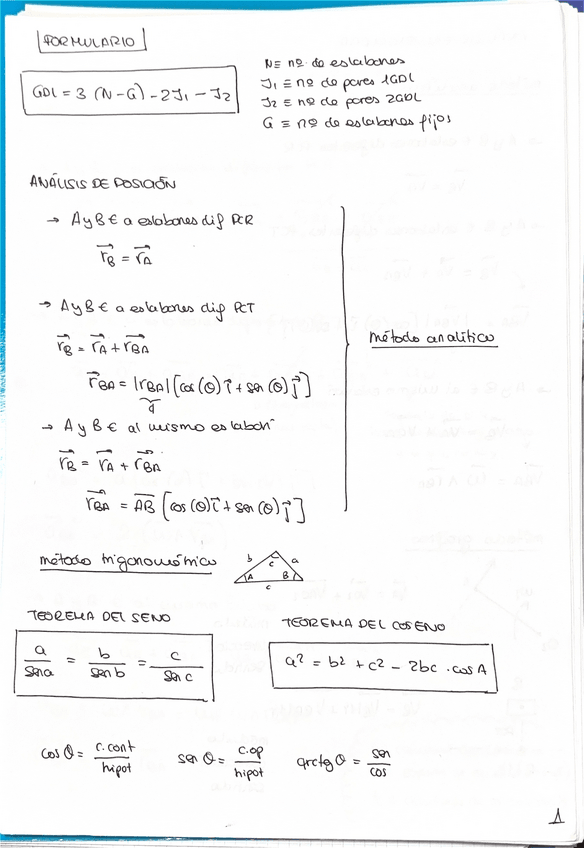 FORMULARIO
GDL = 3 (N-G) - 2J₁ - J₂
N ≡ nº de eslabones
J₁ ≡ nº de pares 1GDL
J₂ ≡ nº de pares 2GDL
G ≡ nº de eslabones fijos
ANÁLISIS DE POSICIÓN
→ A y B ∈ a eslabones dif PCR
r⃗B = r⃗A
→ A y B ∈ a eslabones dif PCT
r⃗B = r⃗A + r⃗BA
r⃗BA = |r⃗BA| [cos (θ) i⃗ + sen (θ) j⃗]
d
→ A y B ∈ al mismo eslabón
r⃗B = r⃗A + r⃗BA
r⃗BA = A̅B̅ [cos (θ) i⃗ + sen (θ) j⃗]
método analítico
método trigonométrico
b c a
A B
c
TEOREMA DEL SENO
a/sen a = b/sen b = c/sen c
TEOREMA DEL COSENO
a² = b² + c² - 2bc · cos A
cos θ = c.cont/hipot
sen θ = c.op/hipot
arctg θ = sen/cos
1